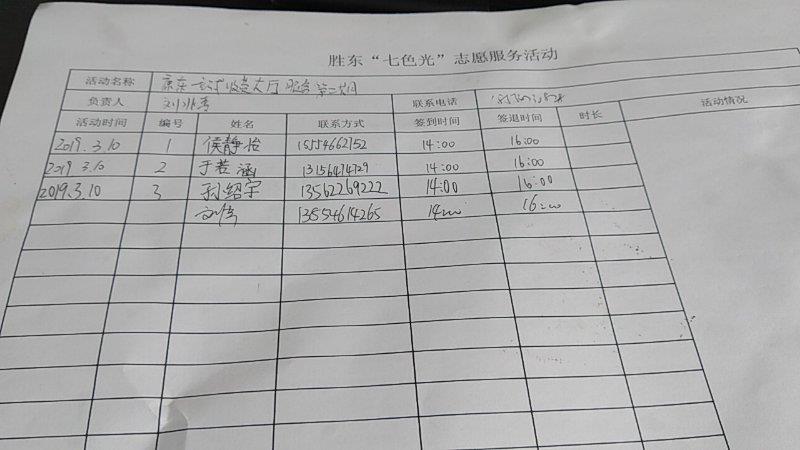 胜东“七色光”志愿服务活动
活动名称 服务第二次
负责人 联系电话 活动情况
活动时间 编号 姓名 联系方式 签到时间 签退时间 时长
2019.3.10 1 侯静怡 15554662752 14:00 16:00
2019.3.10 2 于若涵 13156474729 14:00 16:00
2019.3.10 3 孙绍宇 13562269222 14:00 16:00
13854614265